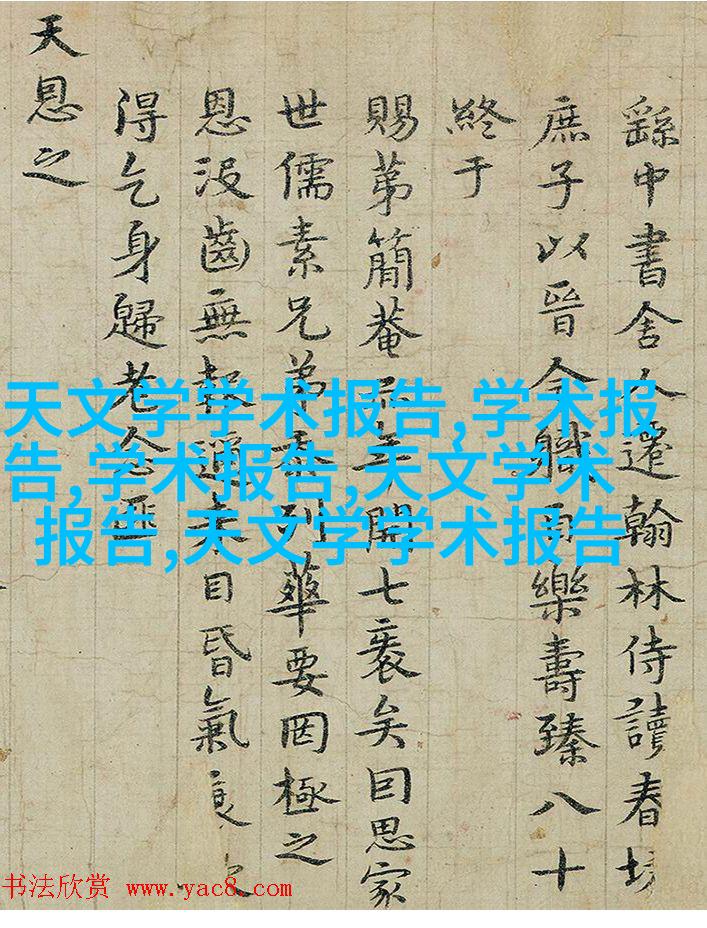 繇中書舍人遷翰林侍讀春坊
庶子以晉今職而樂壽臻八十
終于
賜第簡菴品年開七袠矣因思家
世儒素兄弟忝列華要罔極之
恩沒齒無報邇来目昏氣衰欠
得乞身歸老念匪
天恩之
天文学学术报告,学术报
告,学术报告,天文学术
报告,天文学学术报告
书法欣赏 www.yac8.com